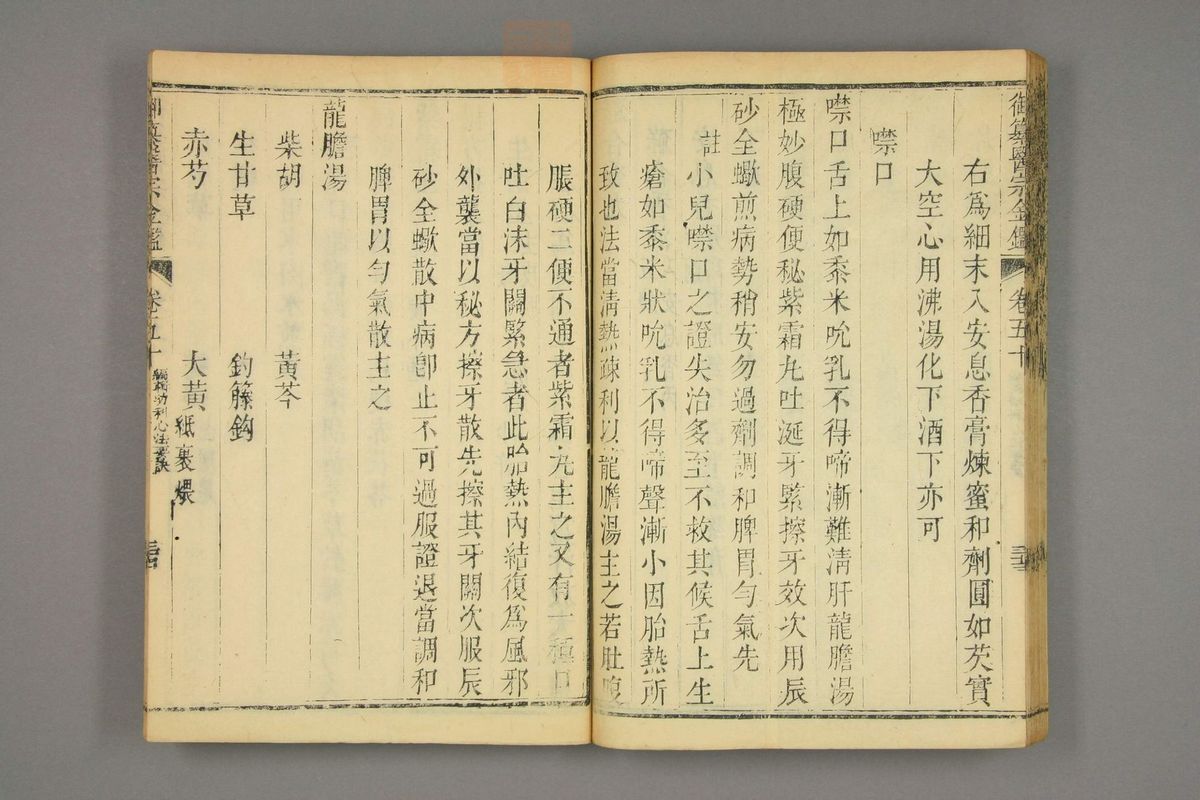 御纂醫宗金鑑 卷五十
右為細末入安息香膏煉蜜和劑圓如芡實
大空心用沸湯化下酒下亦可
噤口
噤口舌上如黍米吮乳不得啼漸難清肝龍膽湯
極妙腹硬便秘紫霜丸吐涎牙緊擦牙效次用辰
砂全蠍煎病勢稍安勿過劑調和脾胃勻氣先
註小兒噤口之證失治多至不救其候舌上生
瘡如黍米狀吮乳不得啼聲漸小因胎熱所
致也法當清熱疎利以龍膽湯主之若肚腹
脹硬二便不通者紫霜丸主之又有一種口
吐白沫牙關緊急者此胎熱內結復為風邪
外襲當以秘方擦牙散先擦其牙關次服辰
砂全蠍散中病卽止不可過服證退當調和
脾胃以勻氣散主之
龍膽湯
柴胡 黃芩
生甘草 鈎籐鈎
赤芍 大黃紙裹煨
御纂醫宗金鑑 卷五十